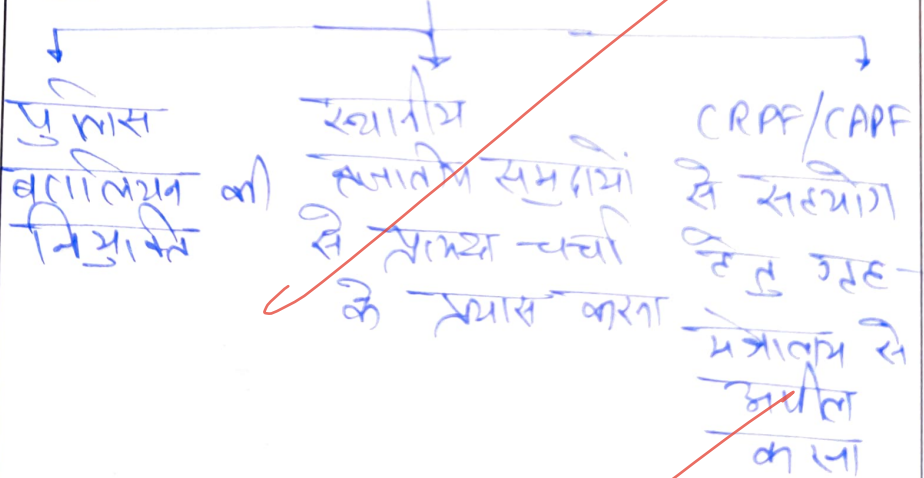 पुलिस
बतालियन की
नियुक्ति
स्थानीय
जनजातीय समुदायों
से प्रत्यक्ष चर्चा
के प्रयास करना
CRPF/CAPF
से सहयोग
हेतु गृह-
मंत्रालय से
अपील
करना